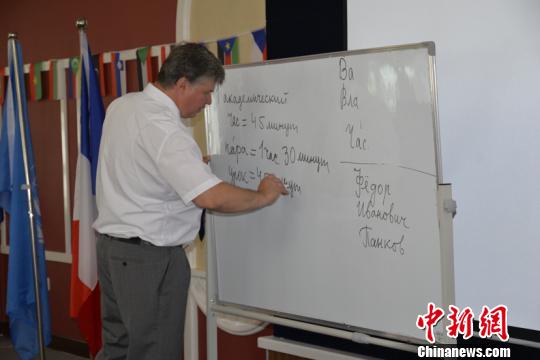 академический
час = 45 минут
пара = 1 час 30 минут
урок = 4 минут
Ва
Вла
Час
Фёдор
Иванович
Панков
中新网
Chinanews.cn